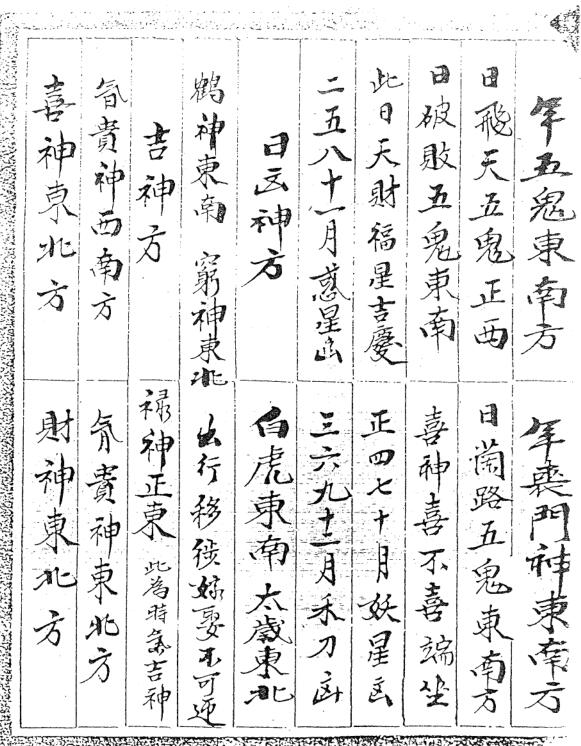 年五鬼東南方 年喪門神東南方
日飛天五鬼正西 日蘭路五鬼東南方
日破敗五鬼東南 喜神喜不喜端坐
此日天財福星吉慶 正四七十月妖星凶
二五八十一月惑星凶 三六九十二月禾刀凶
日凶神方 白虎東南太歲東北
鶴神東南 窮神東北 出行移徙嫁娶不可逆
吉神方 祿神正東 此為時氣吉神
貴神西南方 貴神東北方
喜神東北方 財神東北方